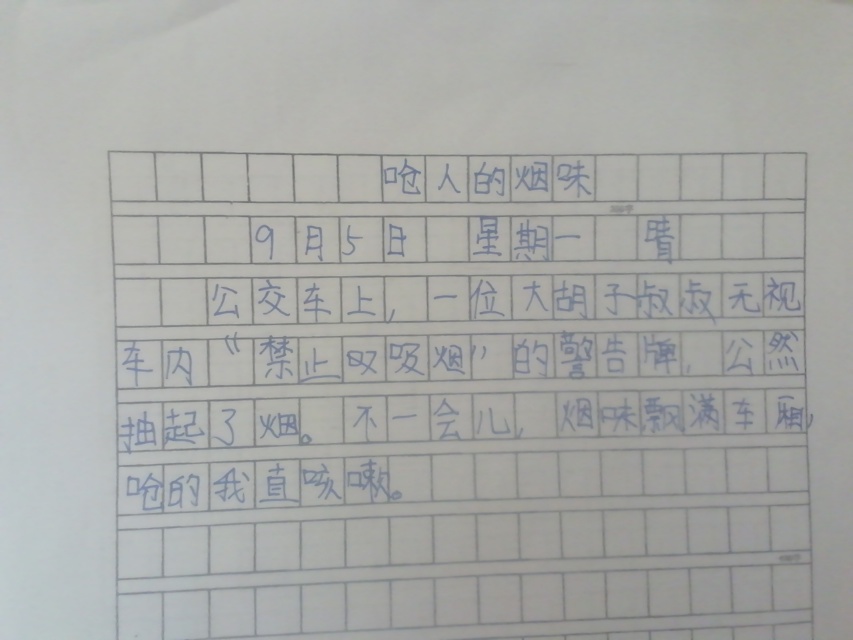 呛人的烟味
9月5日 星期一 晴
公交车上,一位大胡子叔叔无视
车内“禁止吸烟”的警告牌,公然
抽起了烟。不一会儿,烟味飘满车厢,
呛的我直咳嗽。